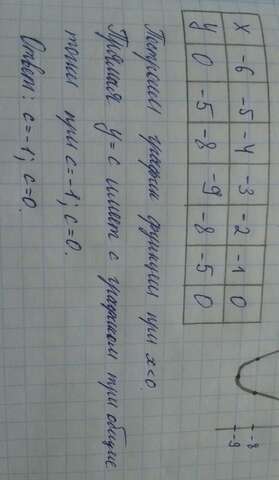 x -6 -5 -4 -3 -2 -1 0
y 0 -5 -8 -9 -8 -5 0
-8
-9
Построим график функции при x<0.
Прямая y=c имеет с графиком три общие
точки при c=-1; c=0.
Ответ: c=-1; c=0.